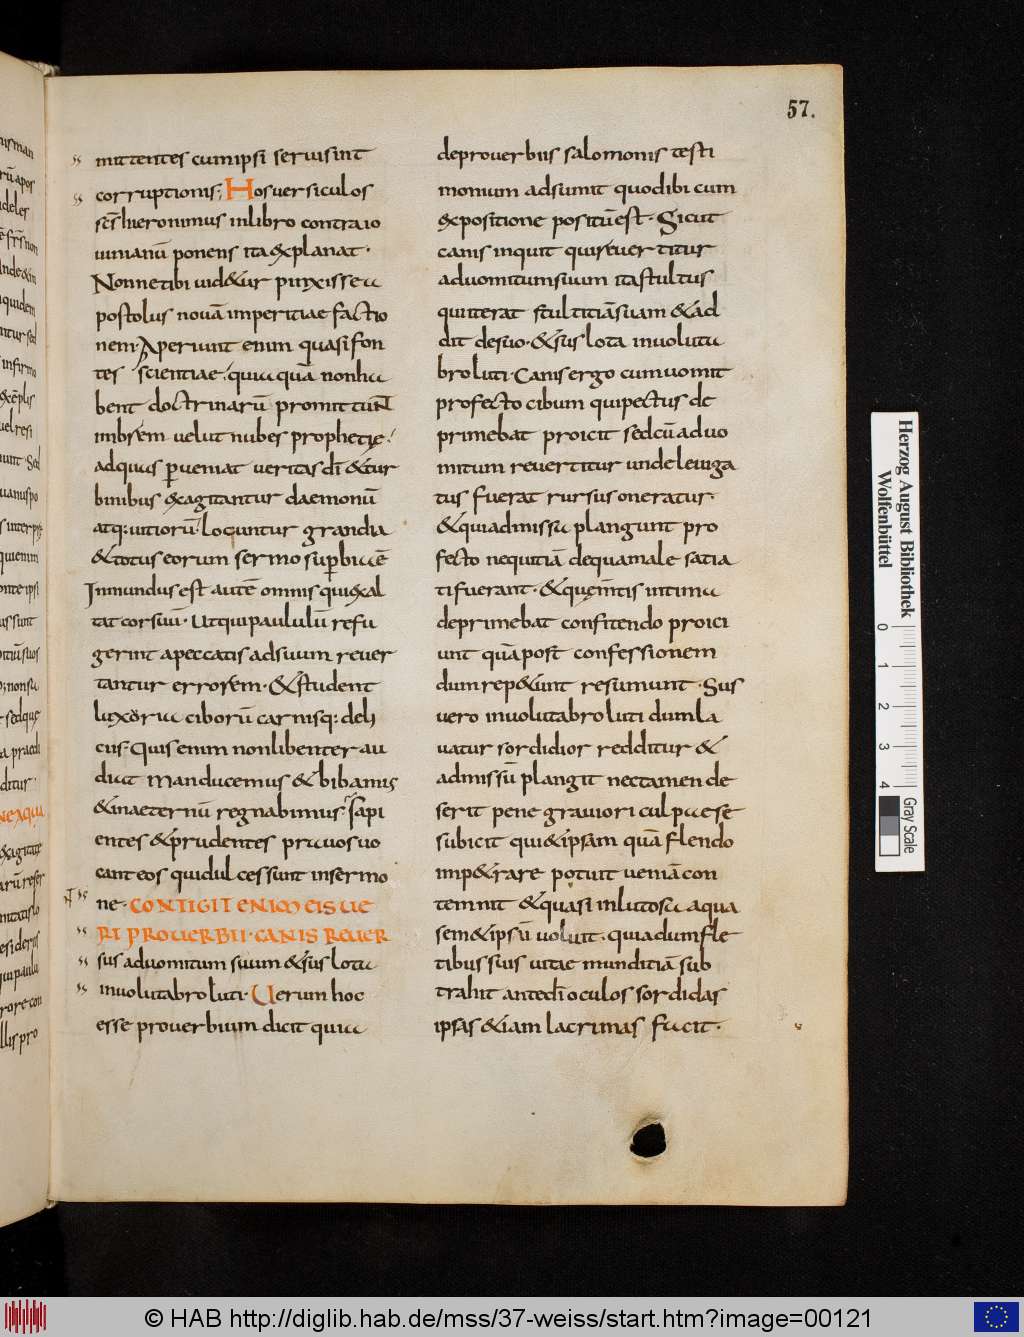 57.
mittentes cumipsi seruisint
corruptionis; Hosuersiculos
scs hieronimus inlibro contraio
uinianū ponens ita explanat·
Nonnetibi uid&ur pinxissea
postolus nouā imperitiae factio
nem· Aperiunt enim quasifon
tes scientiae· quiaquā nonha
bent doctrinarū promittunt
imbrem uelut nubes prophetię·
adquas pueniat ueritas dī &tur
binibus &cagitantur daemonū
atq: uitiorū locuntur grandia
&totus eorum sermo supbiaē
Inmundus est autē omnis quisexal
tat corsuū· Utquipaululū refu
gerint apeccatis adsuum reuer
tantur errorem· &student
luxoria ciborū carnisq: deli
ciis· Quis enim nonlibenter au
diat manducemus &bibamus
&inaeternū regnabimus· sapi
entes &prudentes prauosuo
cant eos quidulces sunt insermo
ne· CONTIGIT ENIM EIS UE
RI PROUERBII· CANIS REUER
sus aduomitum suum &sus lota
inuolutabro luti· Uerum hoc
esse prouerbium dicit quia
deprouerbiis salomonis testi
monium adsumit quodibi cum
expositione positū est· Sicut
canis inquit quireuertitur
aduomitumsuum itastultus
quiiterat stultitiāsuam &ad
dit desuo· &sus lota inuoluta
bro luti· Canis ergo cumuomit
profecto cibum quipectus de
primebat proicit sedcū aduo
mitum reuertitur unde leuiga
tus fuerat rursus oneratur·
&quiadmissa plangunt pro
fecto nequitiā dequamale satia
tifuerant· &quęmtis intima
deprimebat confitendo proici
unt quāpost confessionem
dumrep&unt resumunt· Sus
uero inuolutabro luti dumla
uatur sordidior redditur &
admissū plangit nectamen de
serit pene grauiori culpaese
subicit qui&ipsam quā flendo
imp&rare potuit ueniā con
temnit &quasi inlutosa aqua
sem&ipsū uoluit· quiadumfle
tibus suis uitae munditiā sub
trahit antedī oculos sordidas
ipsas &iam lacrimas facit·
Herzog August Bibliothek
Wolfenbüttel
0 1 2 3 4
Gray Scale
© HAB http://diglib.hab.de/mss/37-weiss/start.htm?image=00121